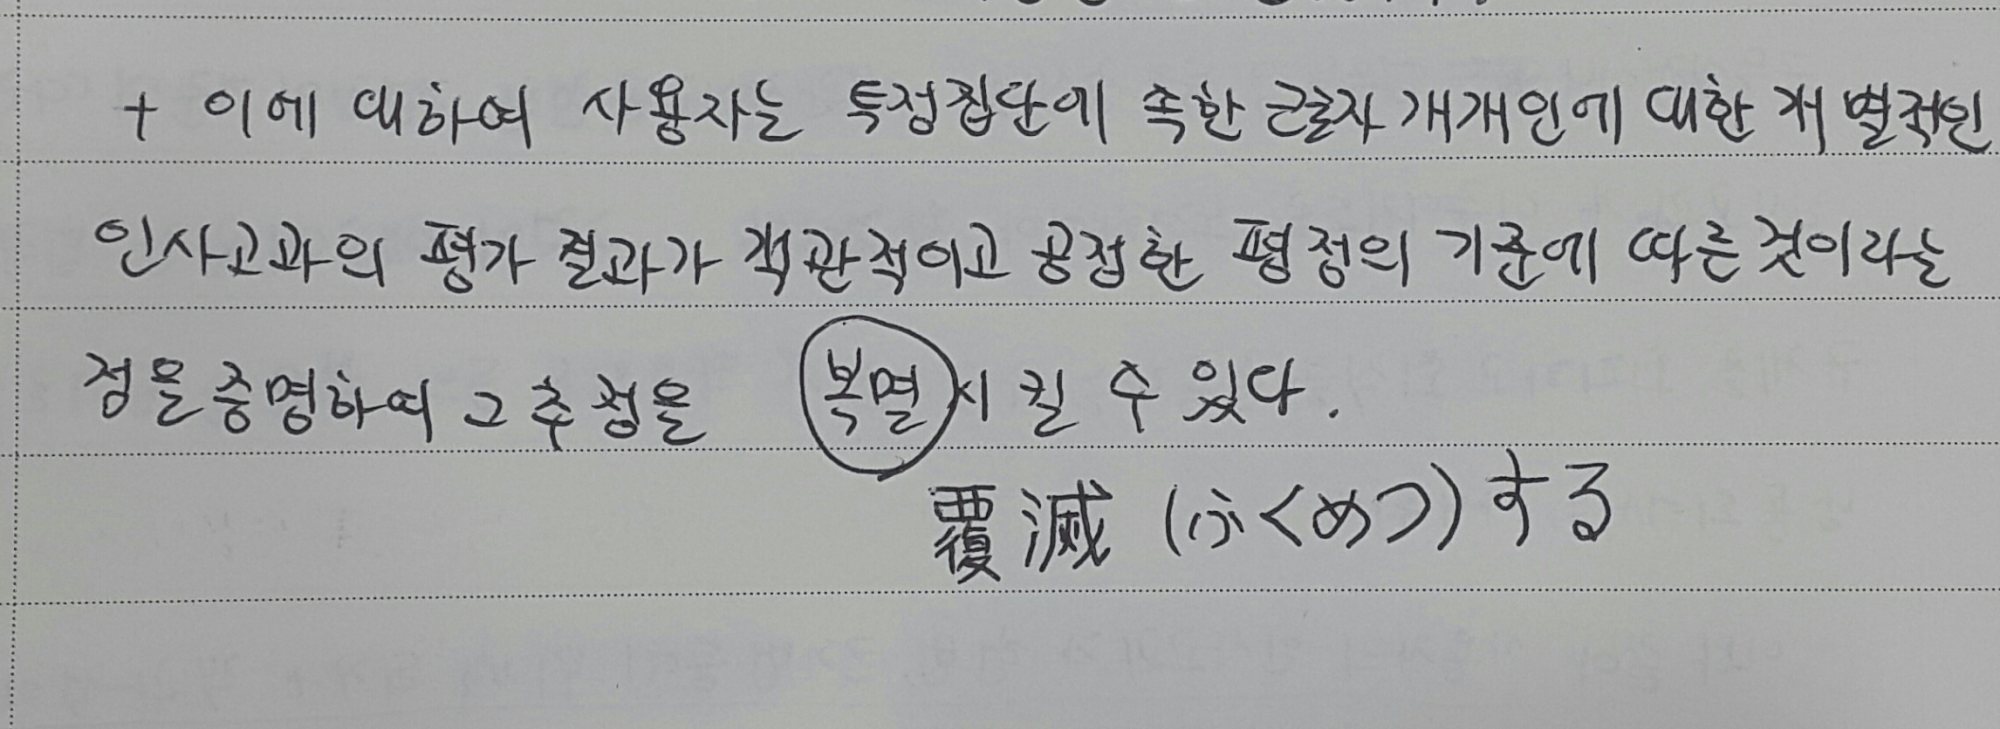 + 이에 대하여 사용자는 특정집단에 속한 근로자 개개인에 대한 개별적인
인사고과의 평가 결과가 객관적이고 공정한 평정의 기준에 따른 것이라는
점을 증명하여 그 추정을 복멸시킬 수 있다.
覆滅 (ふくめつ)する